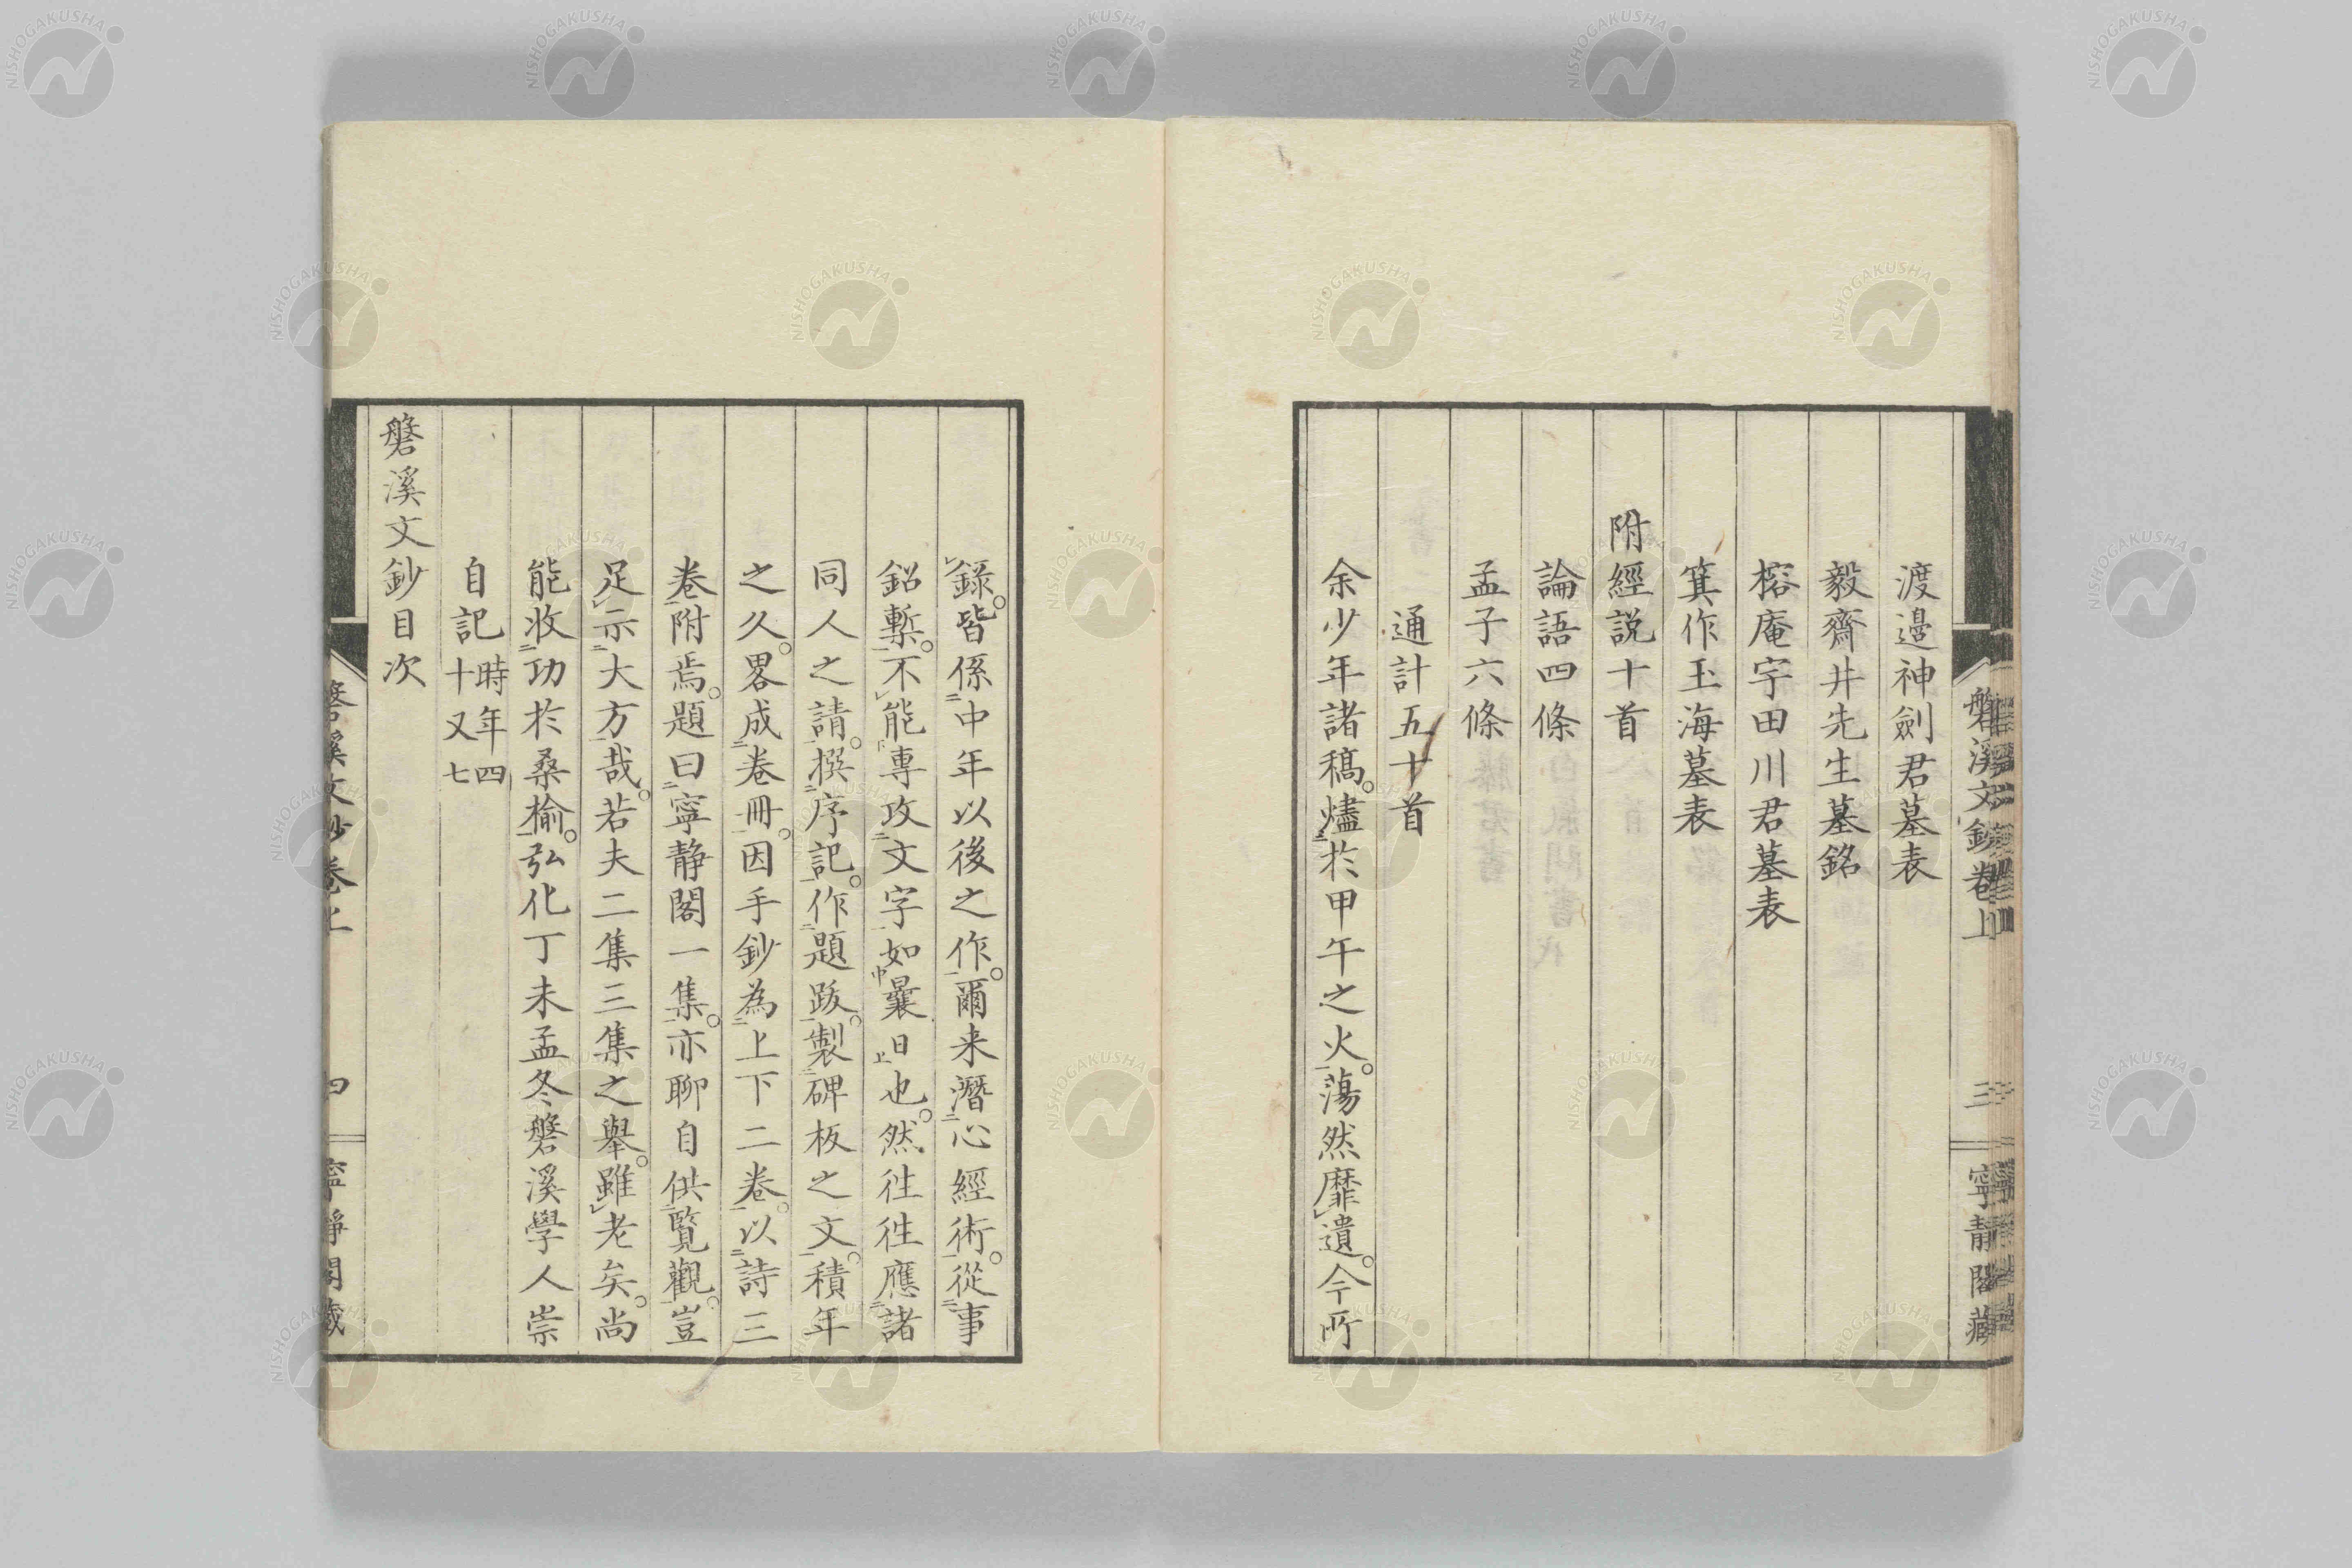 渡邉神劍君墓表
毅齋井先生墓銘
榕庵宇田川君墓表
箕作玉海墓表
附經説十首
論語四條
孟子六條
通計五十首
余少年諸稿。燼於甲午之火。蕩然靡遺。今所
錄。皆係中年以後之作。爾来潛心經術。從事
鉛槧。不能專攻文字如曩日也。然徃徃應諸
同人之請。撰序記。作題跋。製碑板之文。積年
之久。畧成卷冊。因手鈔為上下二卷。以詩三
卷附焉。題曰寧静閣一集。亦聊自供覽觀。豈
足示大方哉。若夫二集三集之舉。雖老矣。尚
能收功於桑榆。弘化丁未孟冬磐溪學人崇
自記時年四十又七
磐溪文鈔目次
磐溪文鈔卷上
三
寧靜閣藏
磐溪文鈔卷上
四
寧靜閣藏
NISHOGAKUSHA